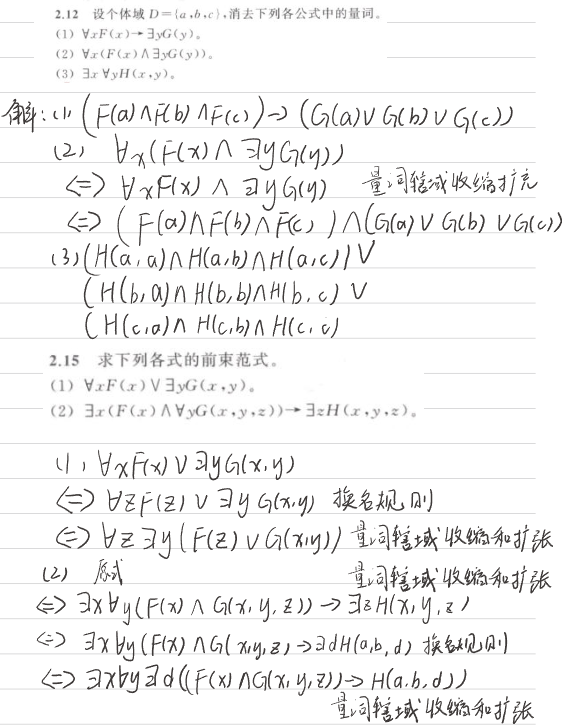 2.12 设个体域 D={a,b,c},消去下列各公式中的量词。
(1) ∀xF(x)→∃yG(y)。
(2) ∀x(F(x)∧∃yG(y))。
(3) ∃x∀yH(x,y)。
解: (1) (F(a)∧F(b)∧F(c))→(G(a)∨G(b)∨G(c))
(2) ∀x(F(x)∧∃yG(y))
⇔ ∀xF(x)∧∃yG(y) 量词辖域收缩扩充
⇔ (F(a)∧F(b)∧F(c))∧(G(a)∨G(b)∨G(c))
(3) (H(a,a)∧H(a,b)∧H(a,c))∨
(H(b,a)∧H(b,b)∧H(b,c)∨
(H(c,a)∧H(c,b)∧H(c,c)
2.15 求下列各式的前束范式。
(1) ∀xF(x)∨∃yG(x,y)。
(2) ∃x(F(x)∧∀yG(x,y,z))→∃zH(x,y,z)。
(1) ∀xF(x)∨∃yG(x,y)
⇔ ∀zF(z)∨∃yG(x,y) 换名规则
⇔ ∀z∃y(F(z)∨G(x,y)) 量词辖域收缩和扩张
(2) 原式 量词辖域收缩和扩张
⇔ ∃x∀y(F(x)∧G(x,y,z))→∃zH(x,y,z)
⇔ ∃x∀y(F(x)∧G(x,y,z)→∃dH(a,b,d) 换名规则
⇔ ∃x∀y∃d((F(x)∧G(x,y,z))→H(a,b,d))
量词辖域收缩和扩张